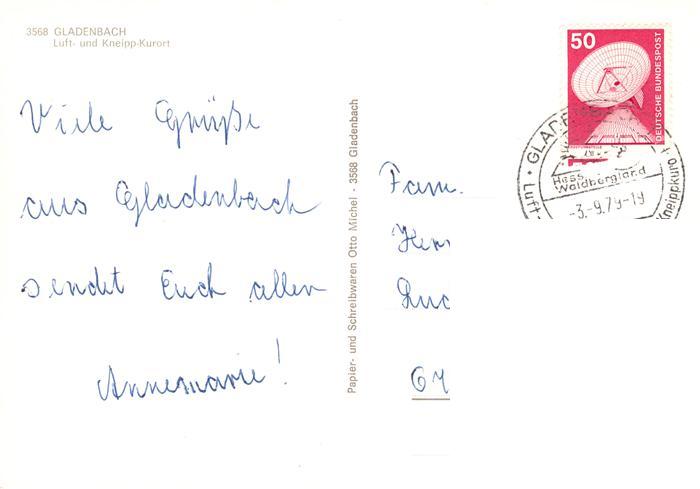 3568 GLADENBACH
Luft- und Kneipp-Kurort
Viele Grüße
aus Gladenbach
sendet Euch allen
Annemarie!
Papier- und Schreibwaren Otto Michel - 3568 Gladenbach
50
DEUTSCHE BUNDESPOST
Hess.
Waldbergland
-3.-9.79-19
Kneippkuro
Luft
Fam.